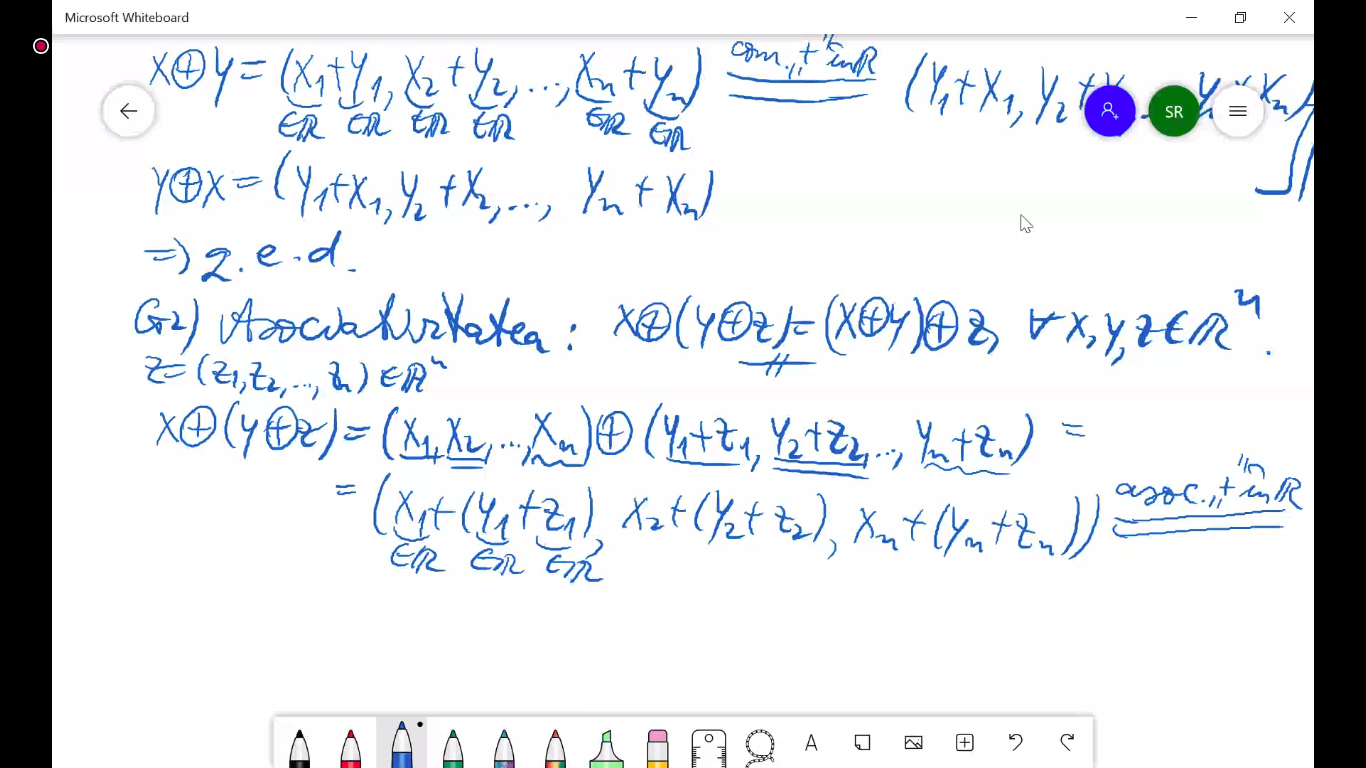 Microsoft Whiteboard
x⊕y = (x₁+y₁, x₂+y₂, ..., xₙ+yₙ) com. „+" în ℝ (y₁+x₁, y₂+x₂ ... yₙ+xₙ)
∈ℝ ∈ℝ ∈ℝ ∈ℝ ∈ℝ ∈ℝ
SR
y⊕x = (y₁+x₁, y₂+x₂, ..., yₙ+xₙ)
=> q.e.d.
G2) Asociativitatea: x⊕(y⊕z) = (x⊕y)⊕z, ∀ x,y,z∈ℝⁿ.
z=(z₁,z₂,...,zₙ) ∈ℝⁿ
x⊕(y⊕z) = (x₁,x₂,...,xₙ)⊕(y₁+z₁, y₂+z₂,..., yₙ+zₙ) =
= (x₁+(y₁+z₁), x₂+(y₂+z₂), xₙ+(yₙ+zₙ)) asoc. „+" în ℝ
∈ℝ ∈ℝ ∈ℝ